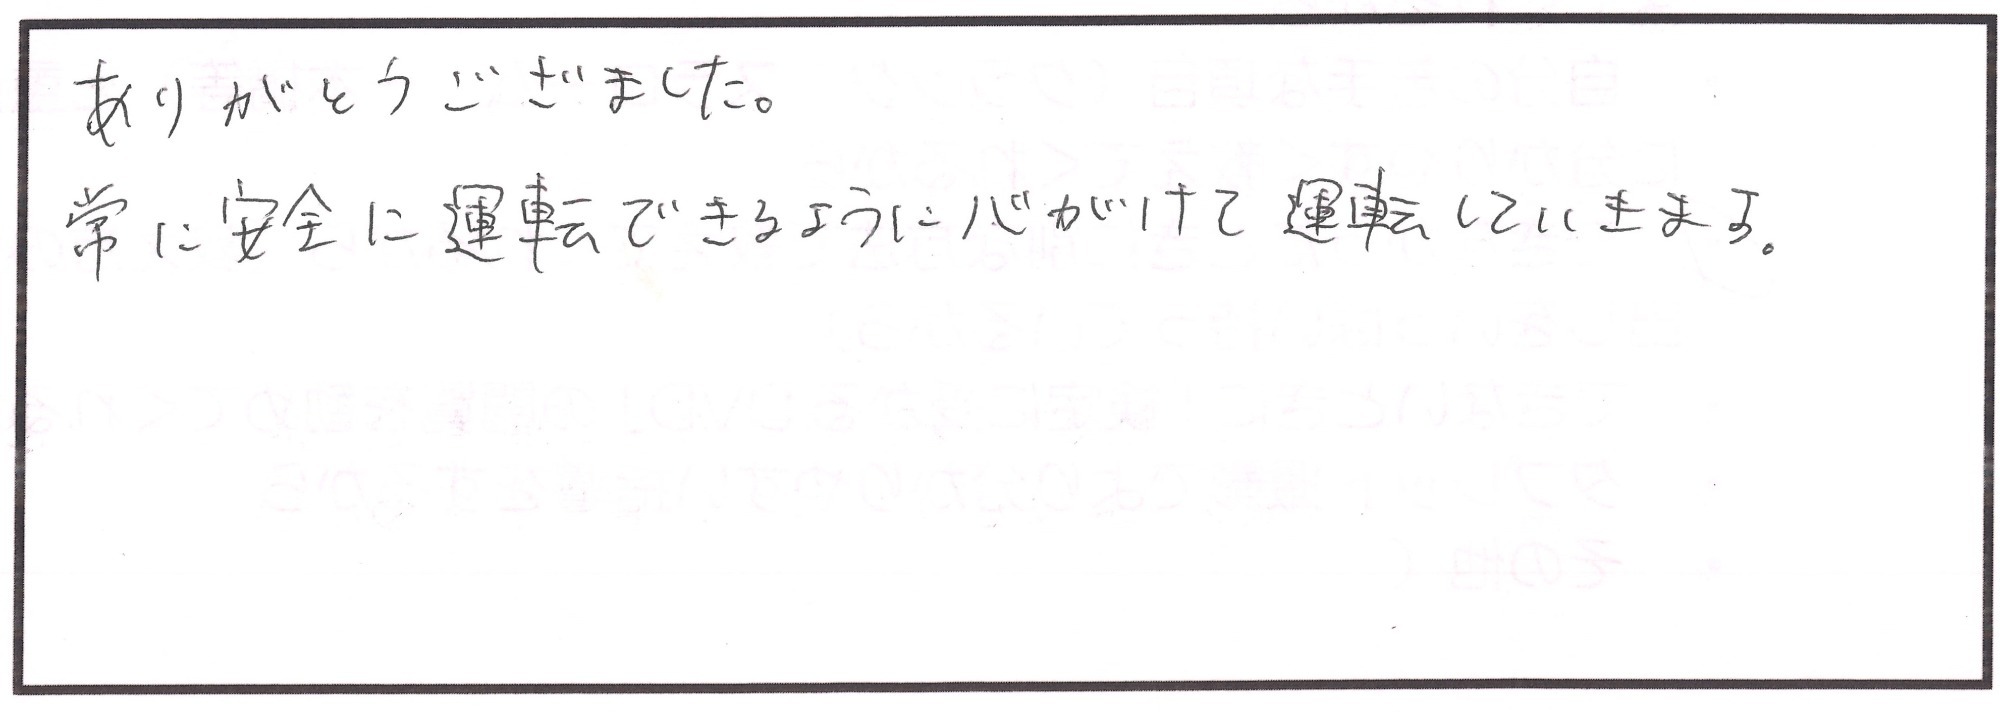 ありがとうございました。
常に安全に運転できるように心がけて運転していきます。